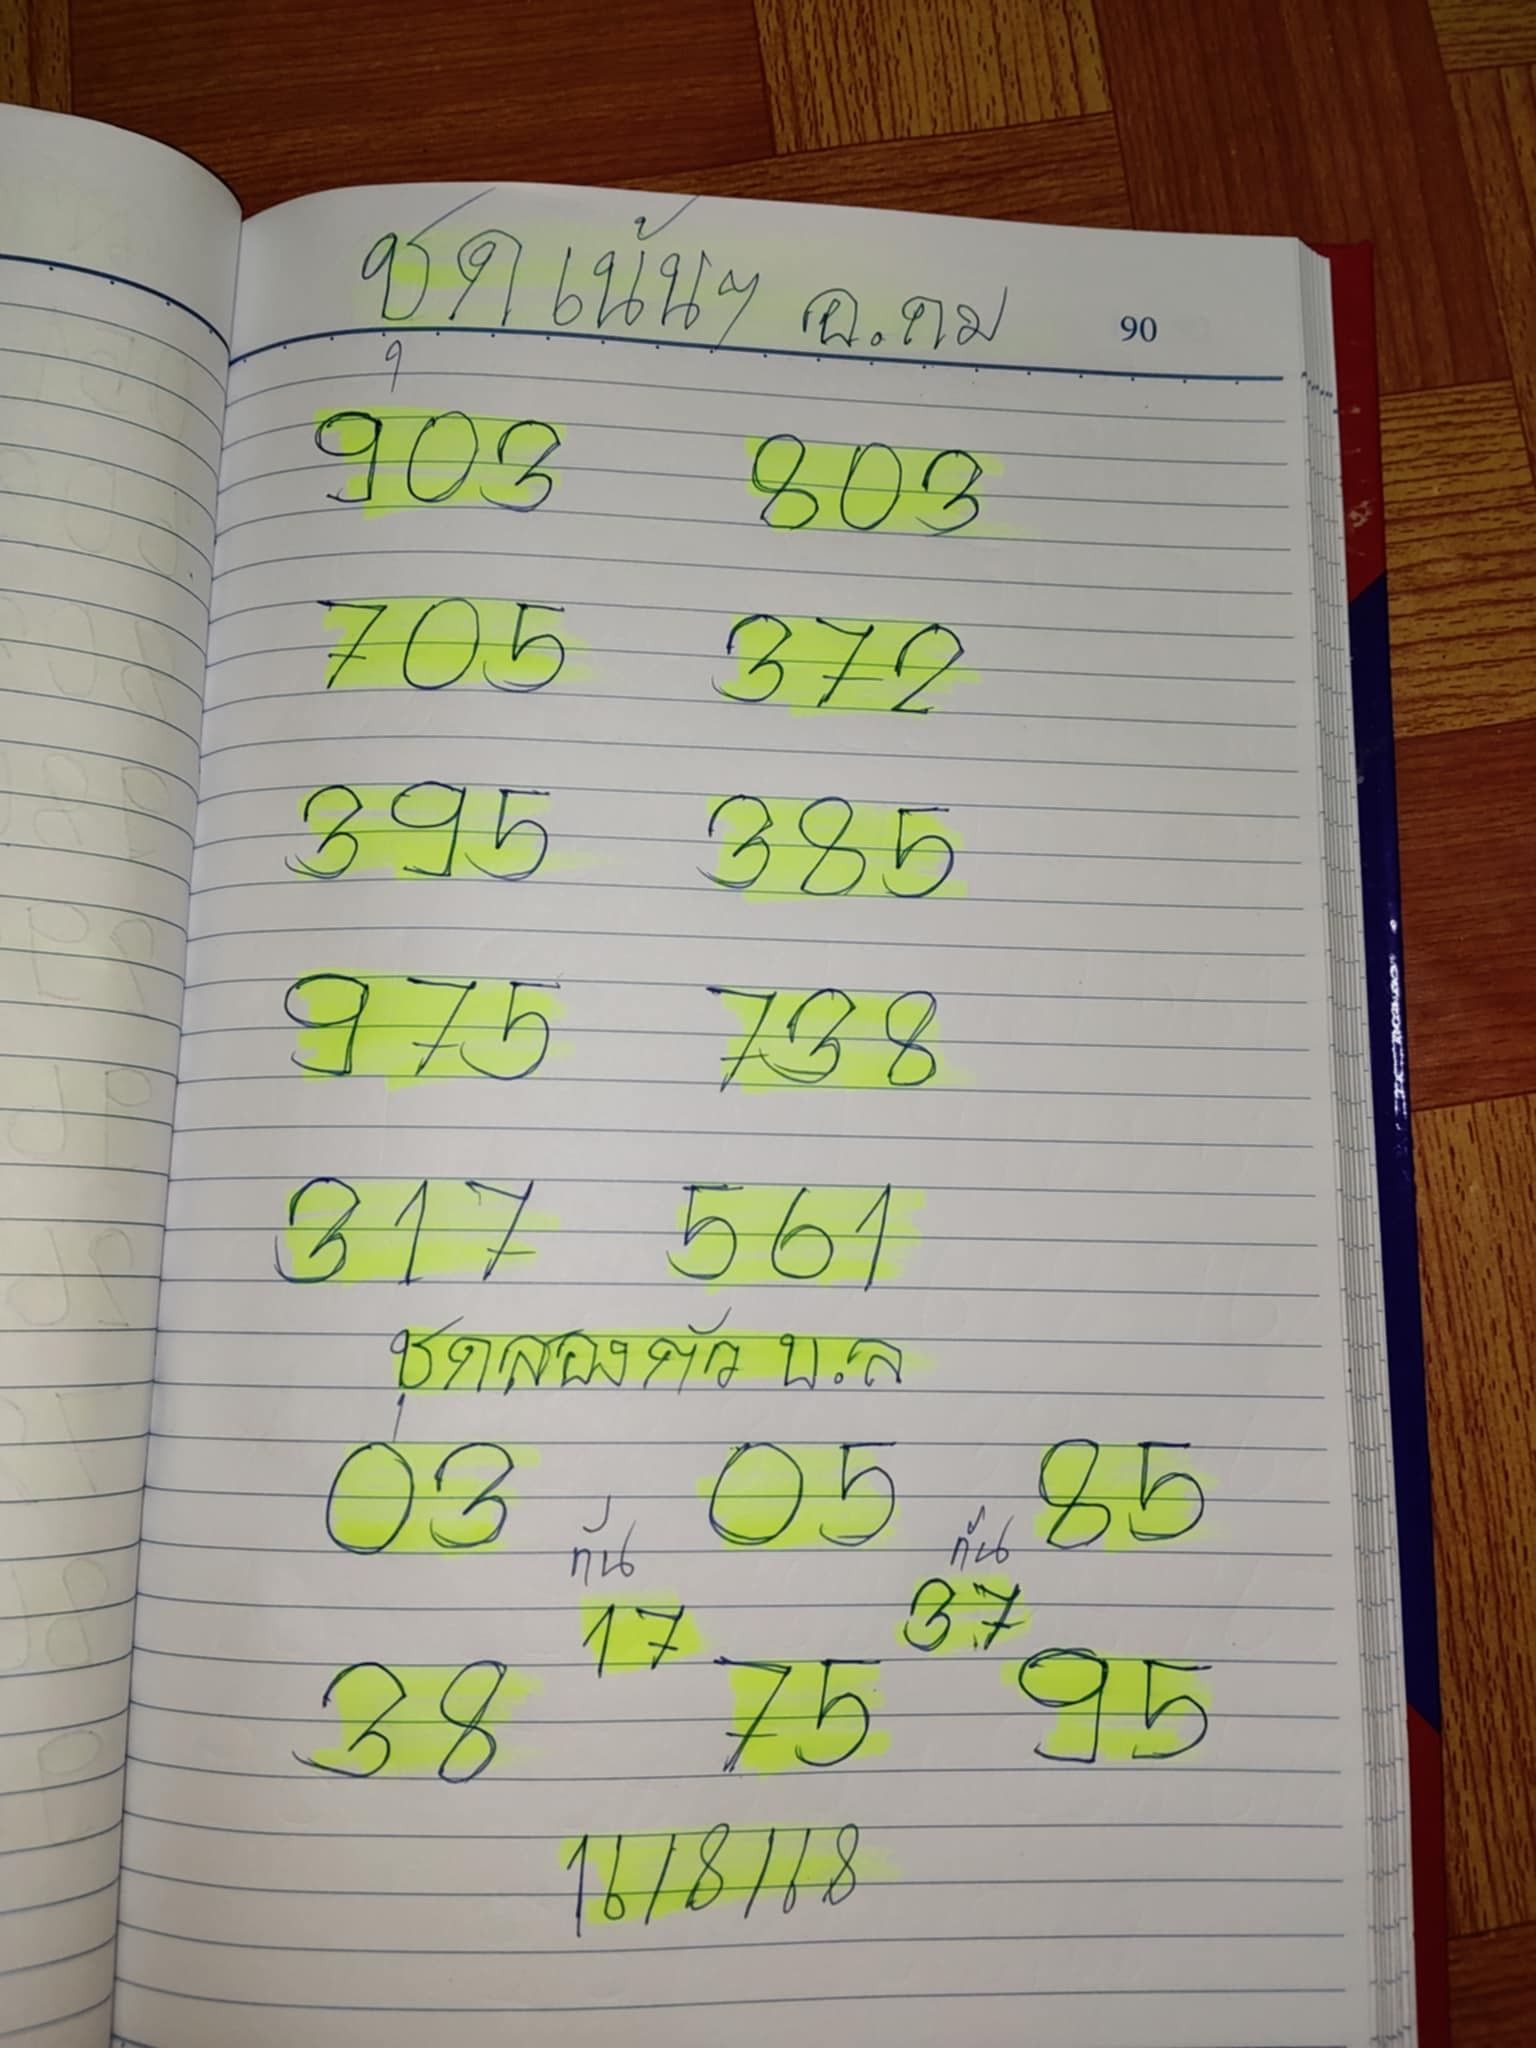 ชุดเน้นๆ อ.คม
90
903 803
705 372
395 385
975 738
317 561
ชุดสองตัว บ.ล
03 05 85
กัน กัน
17 37
38 75 95
16/8/68